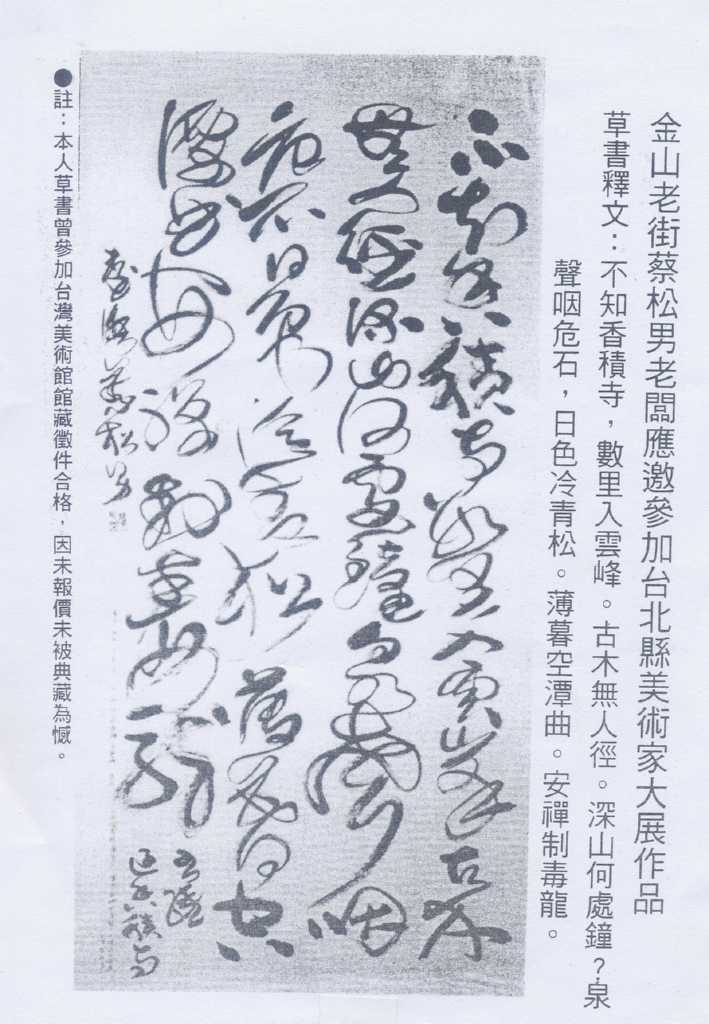 金山老街蔡松男老闆應邀參加台北縣美術家大展作品
草書釋文：不知香積寺，數里入雲峰。古木無人徑。深山何處鐘？泉
聲咽危石，日色冷青松。薄暮空潭曲。安禪制毒龍。
不知香積寺數里入雲峰古木
無人徑深山何處鐘泉聲咽
危石日色冷青松薄暮空
潭曲安禪制毒龍
王維
過香積寺
蔡松男
●註：本人草書曾參加台灣美術館館藏徵件合格，因未報價未被典藏為憾。